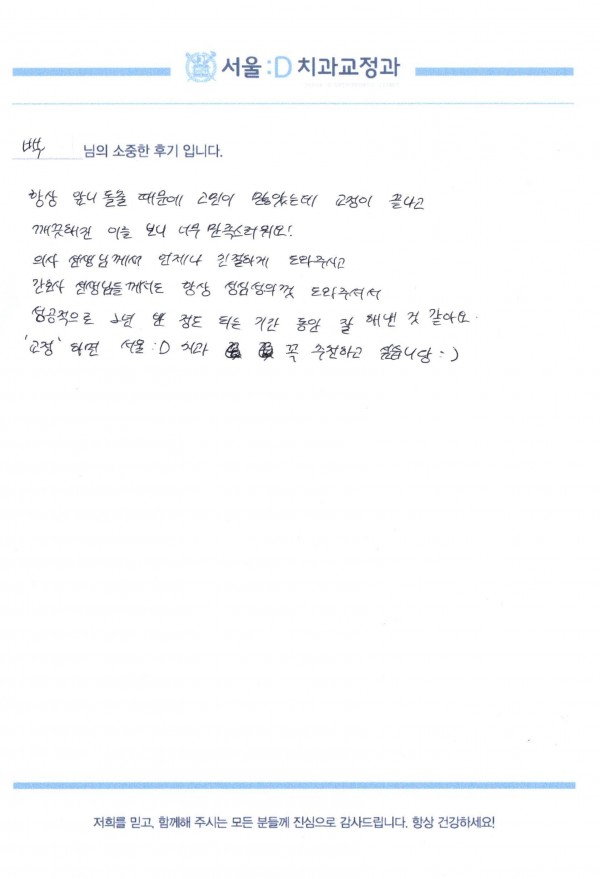 서울:D 치과교정과
백 님의 소중한 후기 입니다.
항상 앞니 돌출 때문에 고민이 많았는데 교정이 끝나고
깨끗해진 이를 보니 너무 만족스러워요!
의사 선생님께서 언제나 친절하게 도와주시고
간호사 선생님들께서도 항상 성심성의껏 도와주셔서
성공적으로 2년 반 정도 되는 기간 동안 잘 해낸 것 같아요.
'교정' 하면 서울:D 치과 꼭 추천하고 싶습니당 :)
저희를 믿고, 함께해 주시는 모든 분들께 진심으로 감사드립니다. 항상 건강하세요!